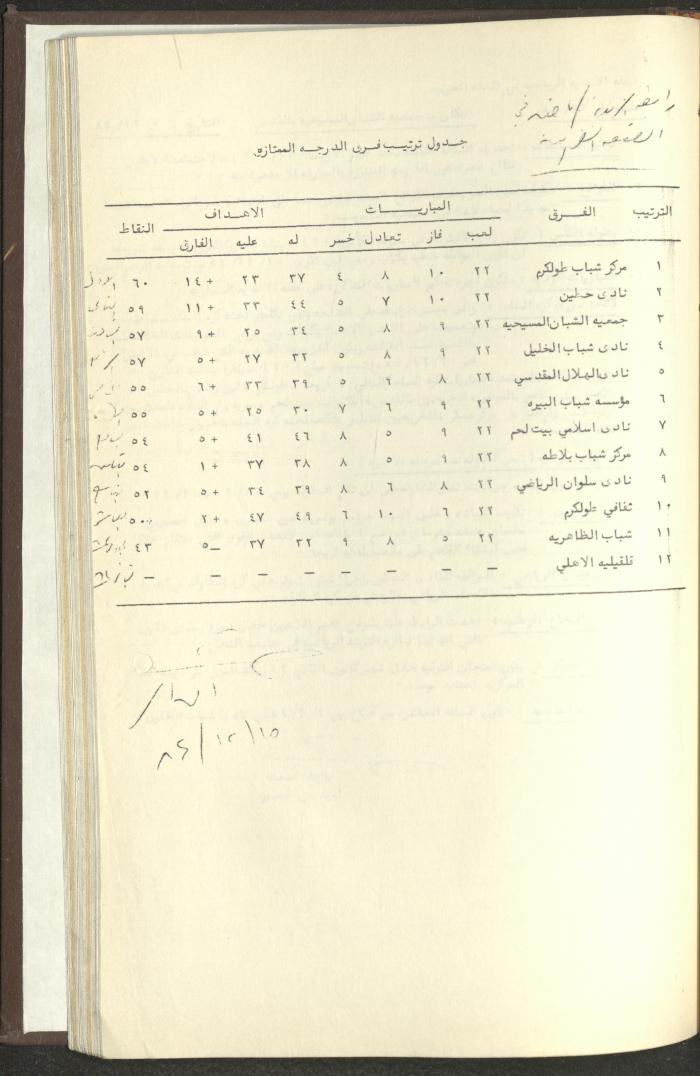 جدول ترتيب فرق الدرجه الممتازه
الترتيب الفـرق المباريـــات الاهـداف النقاط
لعب فاز تعادل خسر له عليه الفارق
١ مركز شباب طولكرم ٢٢ ١٠ ٨ ٤ ٣٧ ٢٣ + ١٤ ٦٠
٢ نادى حطين ٢٢ ١٠ ٧ ٥ ٤٤ ٣٣ + ١١ ٥٩
٣ جمعيه الشبان المسيحيه ٢٢ ٩ ٨ ٥ ٣٤ ٢٥ + ٩ ٥٧
٤ نادى شباب الخليل ٢٢ ٩ ٨ ٥ ٣٢ ٢٧ + ٥ ٥٧
٥ نادى الهلال المقدسي ٢٢ ٨ ٩ ٥ ٣٩ ٣٣ + ٦ ٥٥
٦ مؤسسه شباب البيره ٢٢ ٩ ٦ ٧ ٣٠ ٢٥ + ٥ ٥٥
٧ نادى اسلامي بيت لحم ٢٢ ٩ ٥ ٨ ٤٦ ٤١ + ٥ ٥٤
٨ مركز شباب بلاطه ٢٢ ٩ ٥ ٨ ٣٨ ٣٧ + ١ ٥٤
٩ نادى سلوان الرياضي ٢٢ ٨ ٦ ٨ ٣٩ ٣٤ + ٥ ٥٢
١٠ ثقافي طولكرم ٢٢ ٦ ١٠ ٦ ٤٩ ٤٧ + ٢ ٥٠
١١ شباب الظاهريه ٢٢ ٥ ٨ ٩ ٣٢ ٣٧ _ ٥ ٤٣
١٢ قلقيليه الاهلي – – – – – – – –
٨٤/١٢/١٥